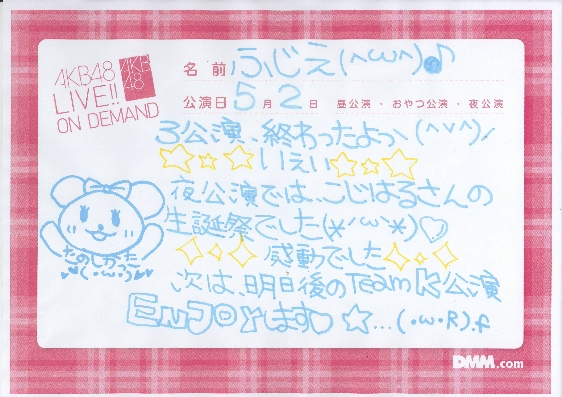 AKB48
LIVE!!
ON DEMAND
AKB
48
名前 ふじえ(^ω^)♪
公演日 5月2日 昼公演・おやつ公演・夜公演
3公演、終わったよっ、(^v^)ノ
☆☆☆いえい☆☆☆
夜公演では、こじはるさんの
生誕祭でした(*´ω`*)♡
感動でした
たのしかった
♥(・ω・)♥
次は、明日後のTeam K公演
ENJOYします♡☆...(・ω・R).f
DMM.com